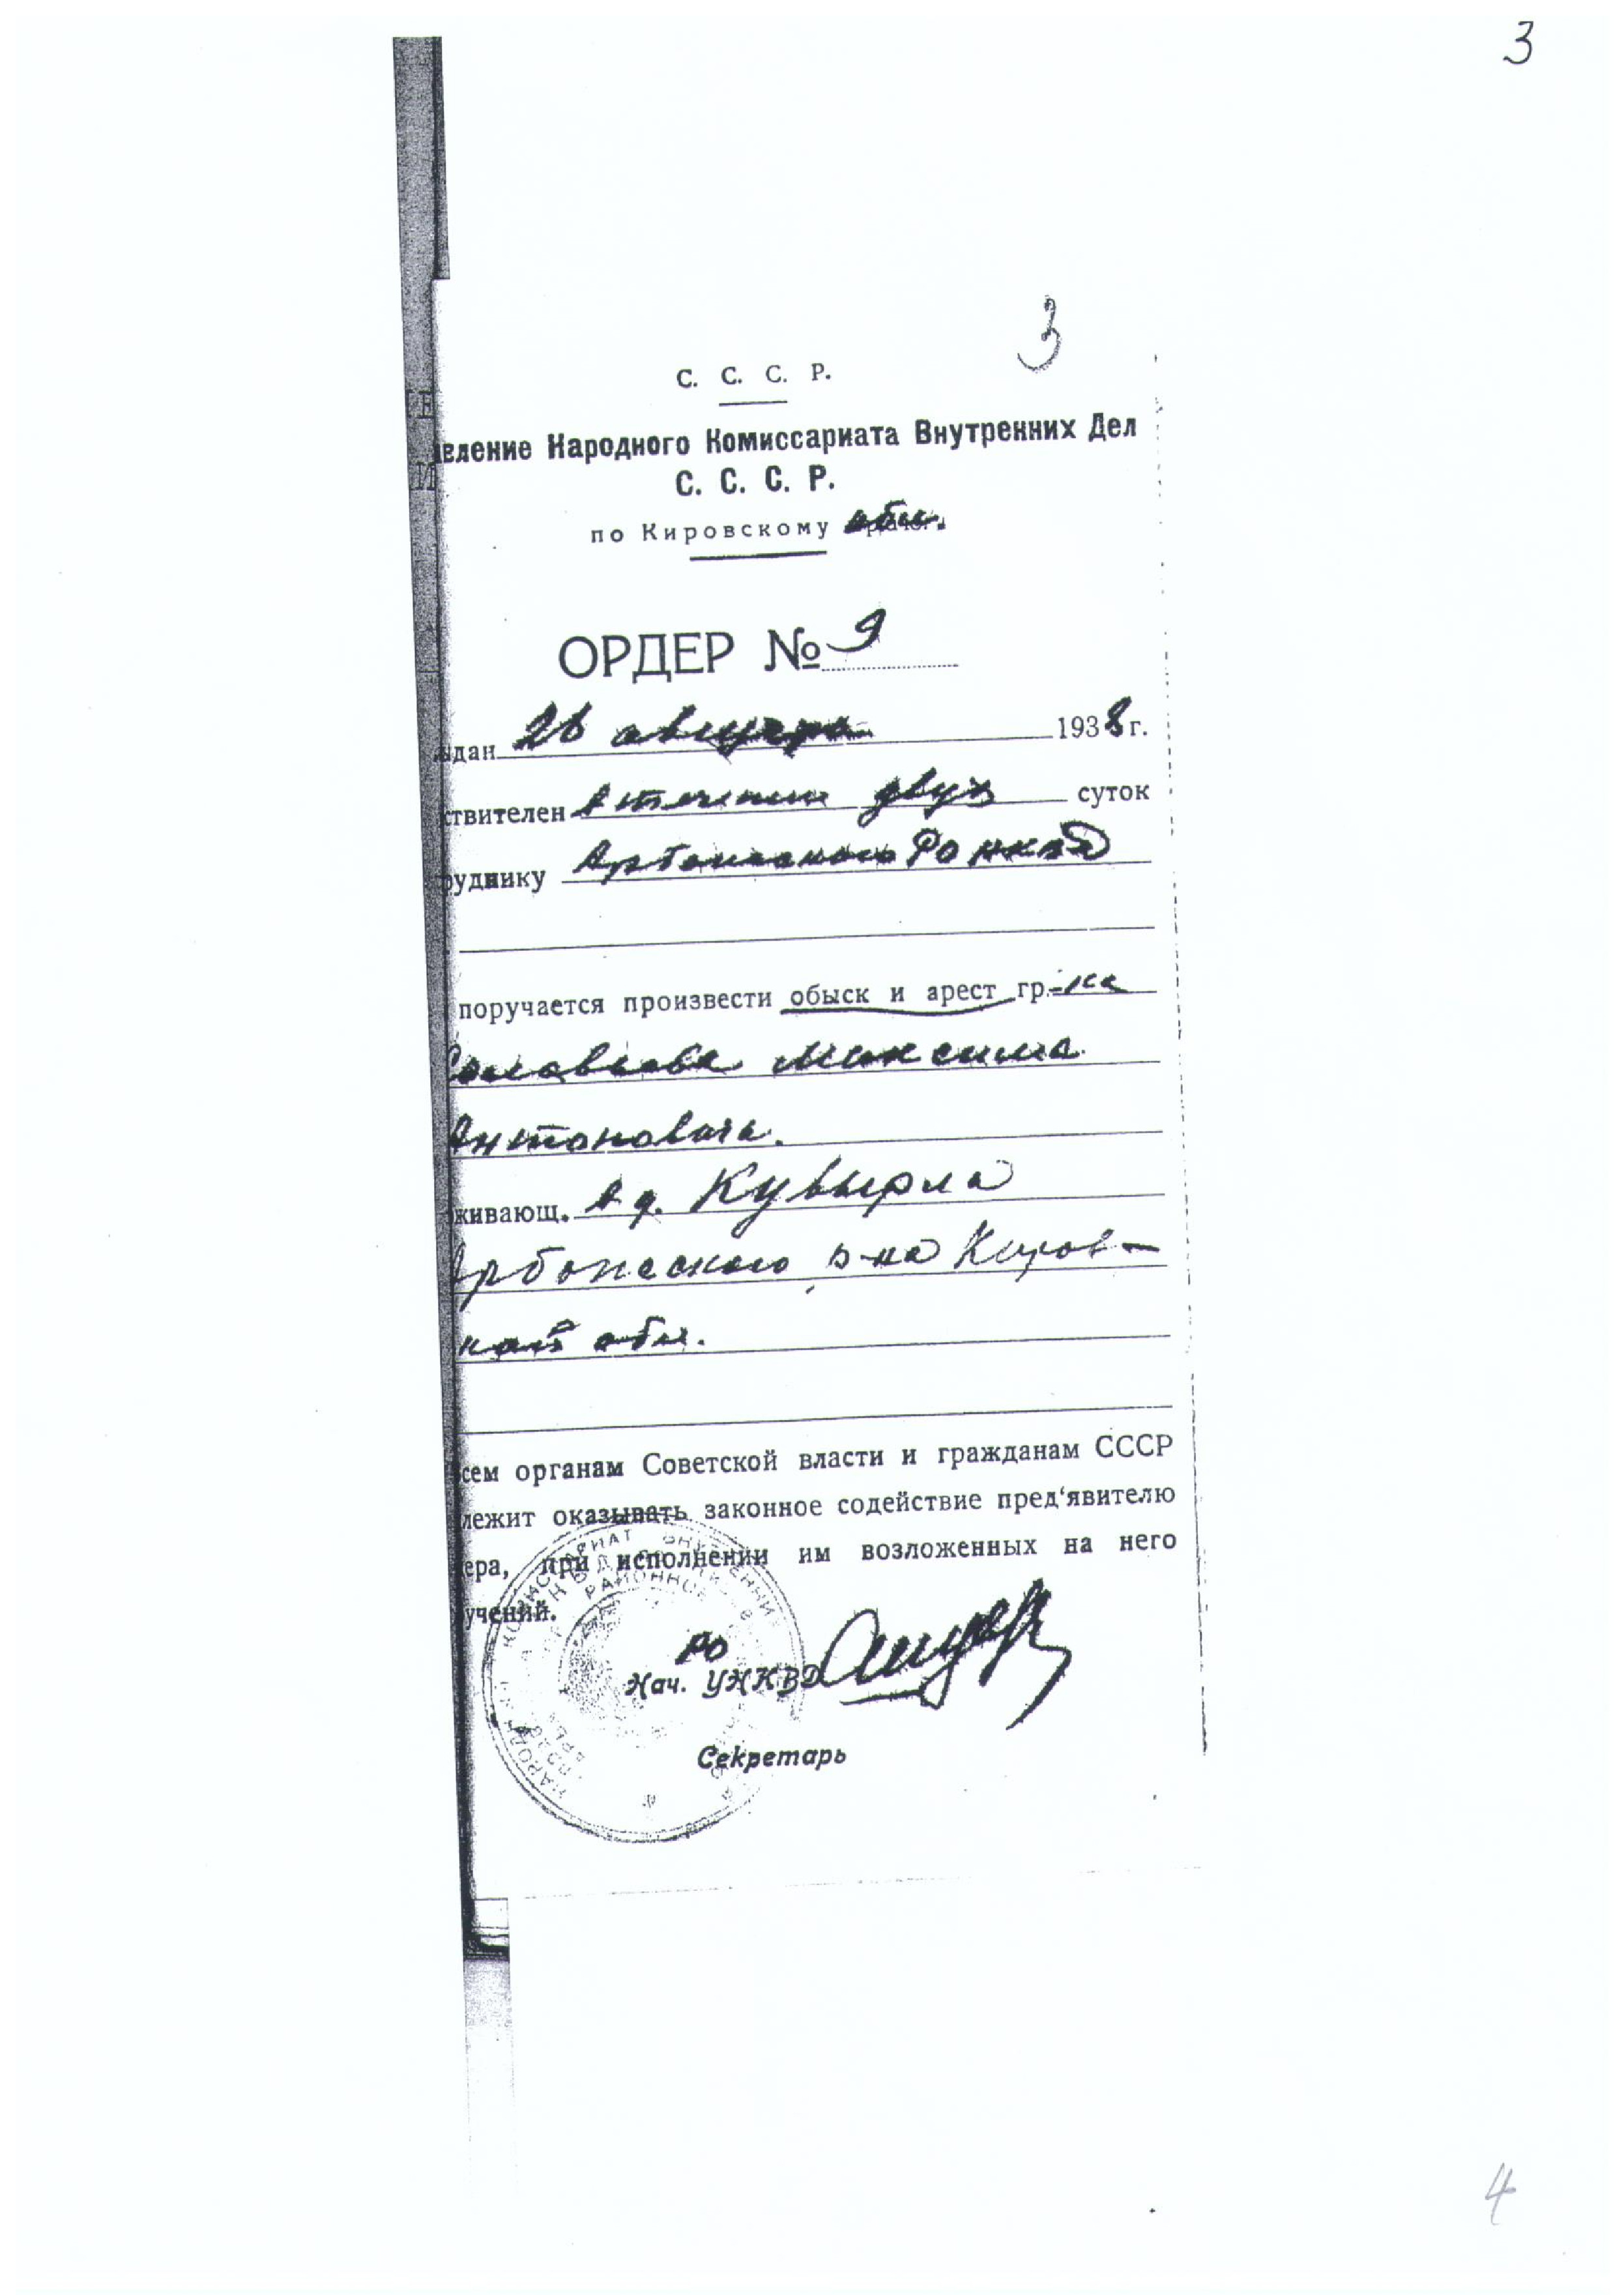 3
3
С. С. С. Р.
вление Народного Комиссариата Внутренних Дел
С. С. С. Р.
по Кировскому обл.
ОРДЕР № 9
дан 26 августа 1938 г.
ствителен в течении двух суток
руднику Арбажского РО НКВД
поручается произвести обыск и арест гр-на
Соловьева Максима
Антоновича.
живающ. в д. Кувырла
Арбажского р-на Киров-
ской обл.
сем органам Советской власти и гражданам СССР
лежит оказывать законное содействие пред'явителю
ера, при исполнении им возложенных на него
учений.
РО
Нач. УНКВД
Секретарь
4